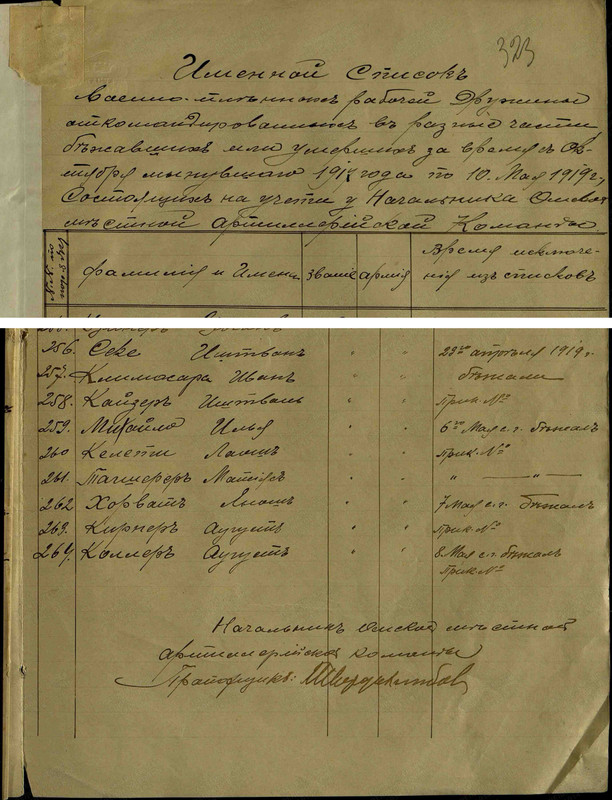 323
Именной Списокъ
Военно-плѣнныхъ рабочей Дружины
откомандированныхъ въ разныя части
бѣжавшихъ или умершихъ за время съ Ок-
тября минувшаго 1917 года по 10. Мая 1919 г.,
Состоящихъ на учетѣ у Начальника Омской
мѣстной артиллерійской Команды
№№ по пор.
фамилія и Имена. званіе армія Время исключе-
нія изъ списковъ
256. Секе Иштванъ " " 23го апрѣля 1919 г.
257. Климохара Иванъ бѣжали
258. Кайзеръ Иштванъ " " Прик. №
259. Михайло Илья " " 6го Мая с.г. бѣжалъ
260 Келети Лаошъ " " Прик. №
261. Матіясъ " " " — " —
262 Хорватъ Яношъ " " 7 Мая с.г. бѣжалъ
263. Кирнеръ Аугустъ " " Прик. №
264. Коллеръ Аугустъ " " 8 Мая с.г. бѣжалъ
Прик. №
Начальникъ Омской мѣстной
артиллерійской команды
Прапорщикъ: